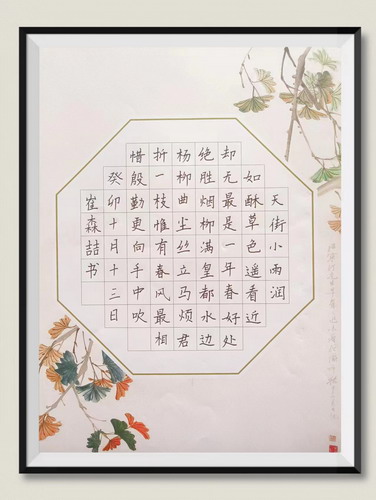 天街小雨润
如酥草色遥看近
却无最是一年春好处
绝胜烟柳满皇都水边
杨柳曲尘丝立马烦君
折一枝惟有春风最相
惜殷勤更向手中吹
癸卯十月十三日
崔森喆书